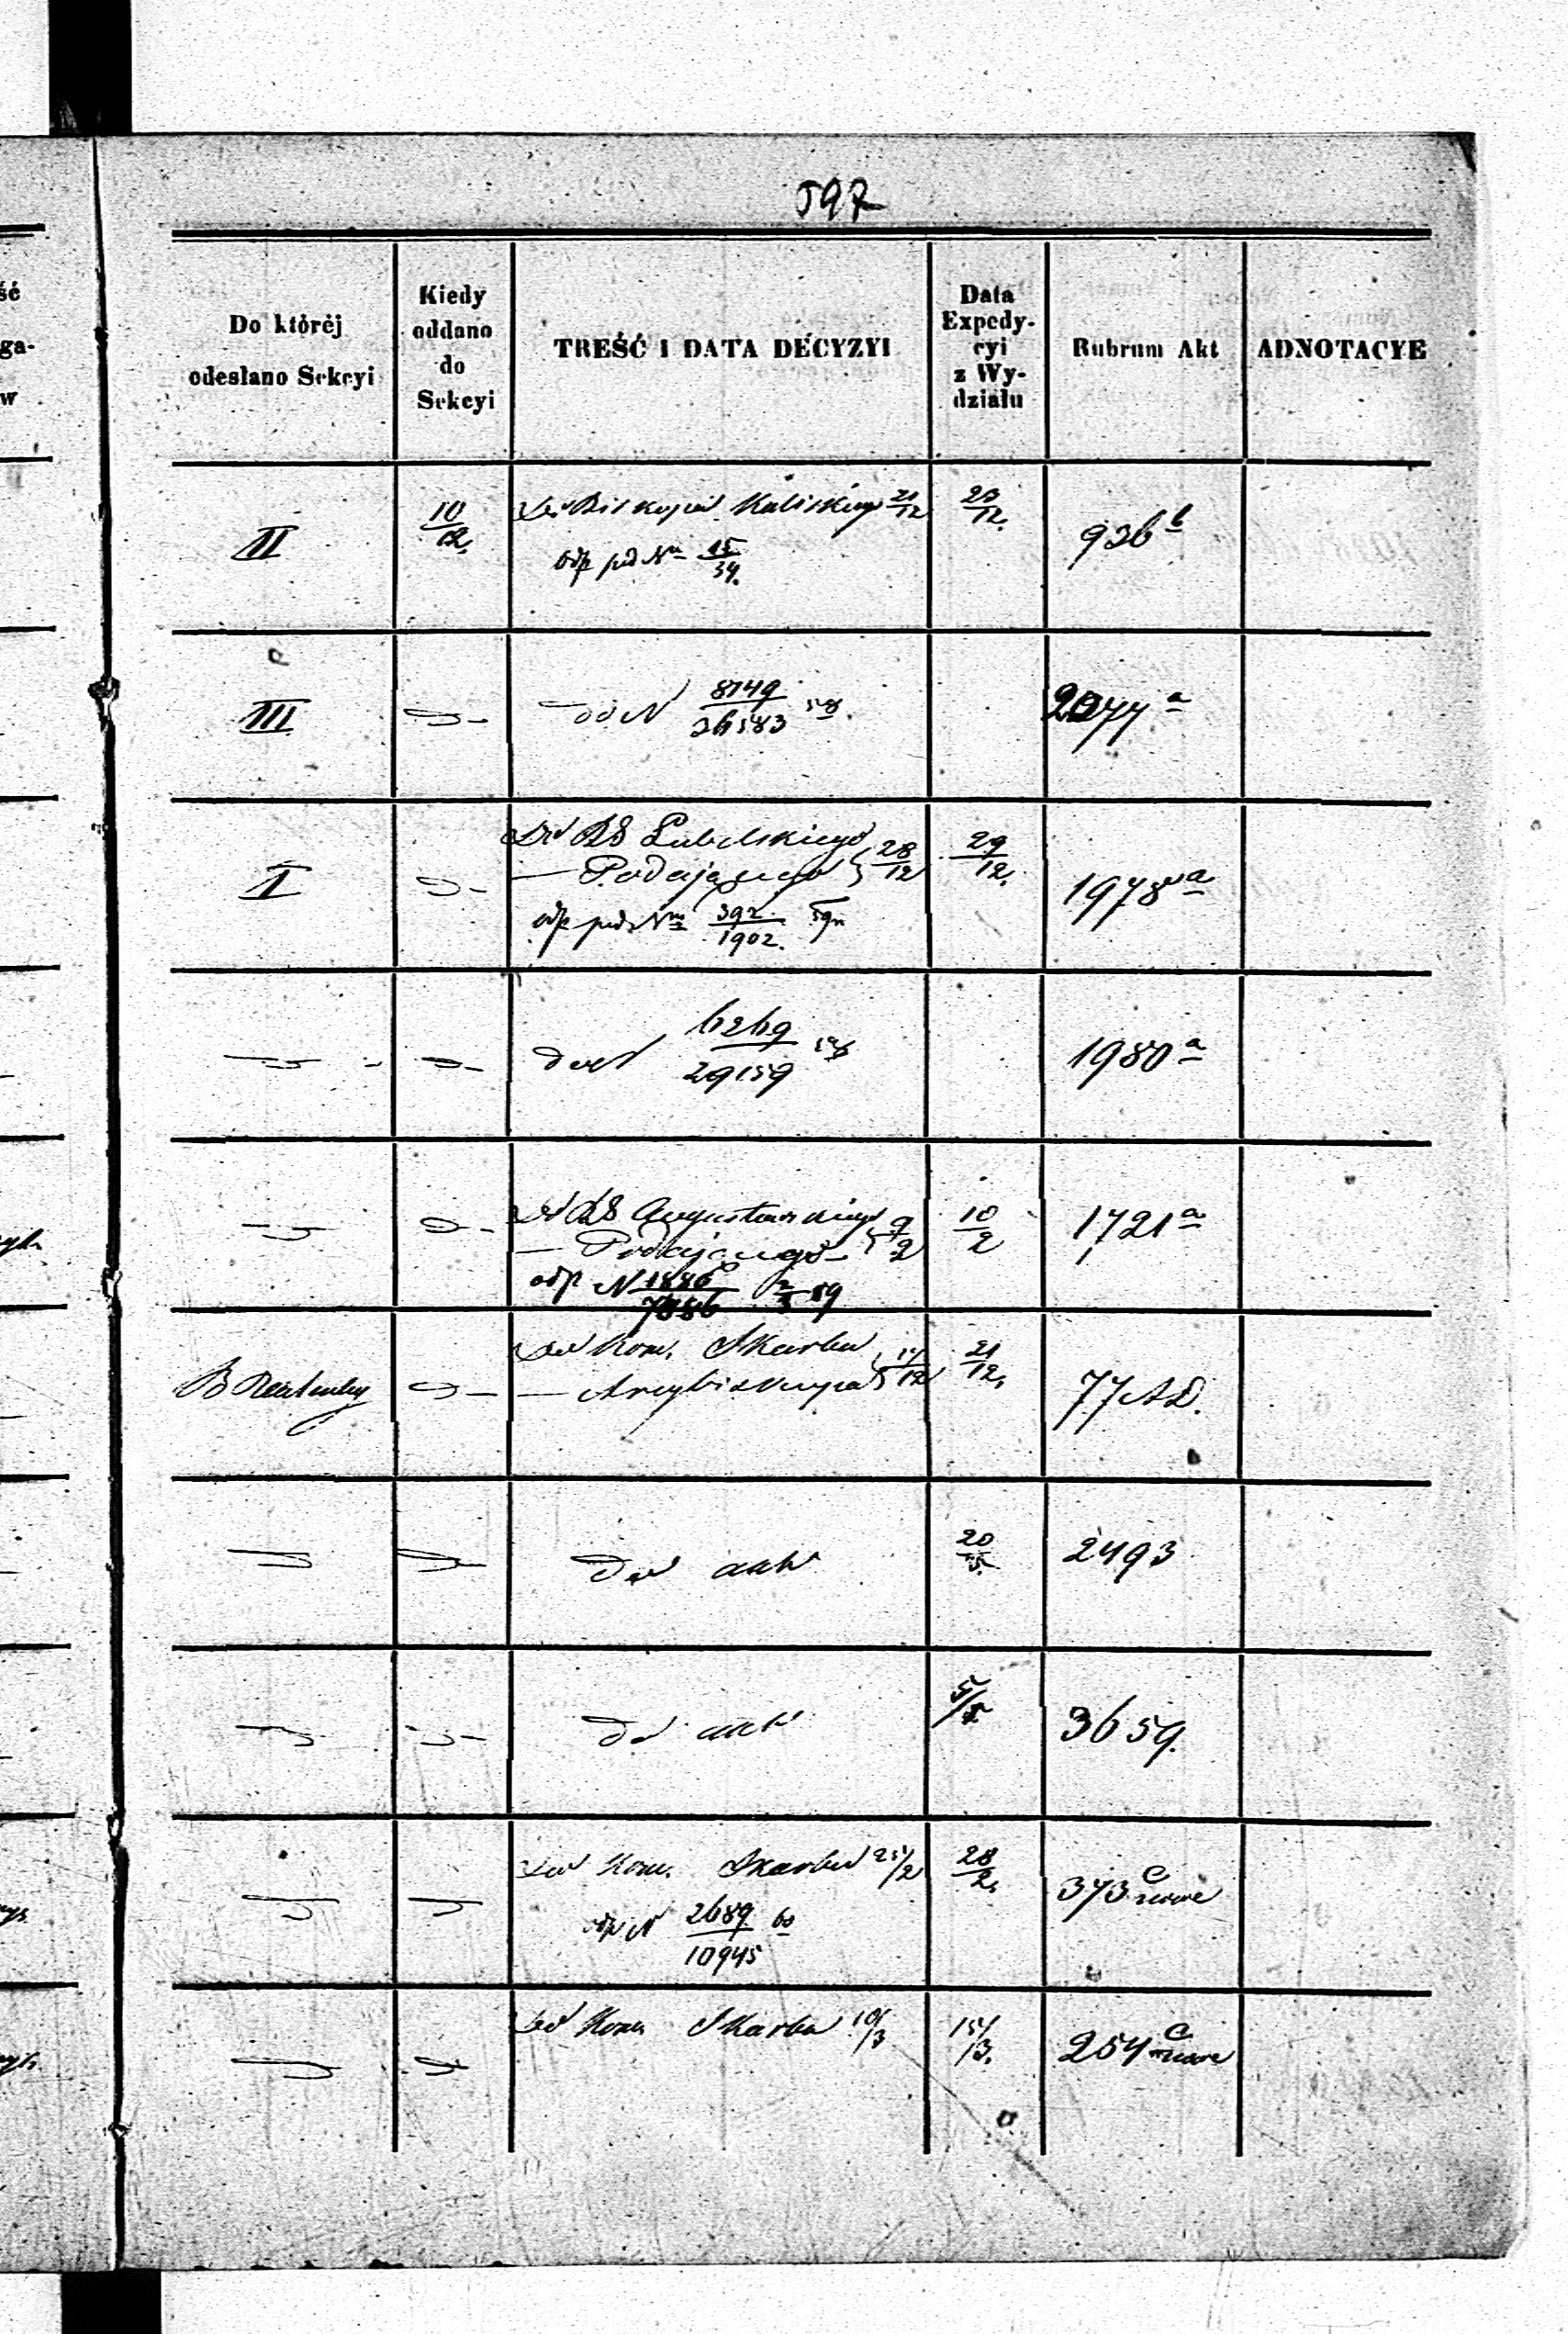 597
Do któréj
odesłano Sekcyi
Kiedy
oddano
do
Sekcyi
TREŚĆ I DATA DECYZYI
Data
Expedy-
cyi
z Wy-
działu
Rubrum Akt
ADNOTACYE
II
10/12
Do Biskupa Kaliskiego 21/12
odp pod Nr 15/34.
23/12.
926 b
III
do N 8749/26583 58.
2077 a
I
Do RG Lubelskiego
— Podającego } 28/12
odp pod Nrm 392/1902. 59
29/12.
1978 a
do N 6269/29159 58
1980 a
Do RG Augustowskiego
— Podającego } 9/2
odp N 1886/7886 2/3 59
10/2
1721 a
Do Kom. Skarbu
— Arcybiskupa } 17/12
21/12.
77 AD.
Do akt
20/5.
2493
Do akt
5/5.
3659.
Do Kom. Skarbu 25/2
odp N 2689/10945 60
28/2.
373 C nowe
Do Kom Skarbu 10/3
15/3.
254 C nowe